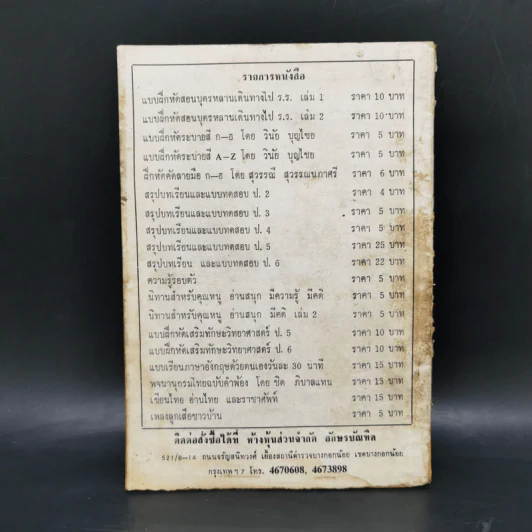 รายการหนังสือ
แบบฝึกหัดสอนบุตรหลานเดินทางไป ร.ร. เล่ม 1 ราคา 10 บาท
แบบฝึกหัดสอนบุตรหลานเดินทางไป ร.ร. เล่ม 2 ราคา 10 บาท
แบบฝึกหัดระบายสี ก—ฮ โดย วินัย บุญไชย ราคา 5 บาท
แบบฝึกหัดระบายสี A—Z โดย วินัย บุญไชย ราคา 5 บาท
ฝึกหัดคัดลายมือ ก—ฮ โดย สุวรรณี สุวรรณนภาศรี ราคา 6 บาท
สรุปบทเรียนและแบบทดสอบ ป. 2 ราคา 4 บาท
สรุปบทเรียนและแบบทดสอบ ป. 3 ราคา 5 บาท
สรุปบทเรียนและแบบทดสอบ ป. 4 ราคา 5 บาท
สรุปบทเรียนและแบบทดสอบ ป. 5 ราคา 25 บาท
สรุปบทเรียน และแบบทดสอบ ป. 6 ราคา 22 บาท
ความรู้รอบตัว ราคา 5 บาท
นิทานสำหรับคุณหนู อ่านสนุก มีความรู้ มีคติ ราคา 5 บาท
นิทานสำหรับคุณหนู อ่านสนุก มีคติ เล่ม 2 ราคา 5 บาท
แบบฝึกหัดเสริมทักษะวิทยาศาสตร์ ป. 5 ราคา 10 บาท
แบบฝึกหัดเสริมทักษะวิทยาศาสตร์ ป. 6 ราคา 10 บาท
แบบเรียนภาษาอังกฤษด้วยตนเองวันละ 30 นาที ราคา 15 บาท
พจนานุกรมไทยฉบับคำพ้อง โดย ชิต ภิบาลแทน ราคา 15 บาท
เขียนไทย อ่านไทย และราชาศัพท์ ราคา 15 บาท
เพลงลูกเสือชาวบ้าน ราคา 5 บาท
ติดต่อสั่งซื้อได้ที่ ห้างหุ้นส่วนจำกัด อักษรบัณฑิต
521/8-14 ถนนจรัญสนิทวงศ์ เยื้องสถานีตำรวจบางกอกน้อย เขตบางกอกน้อย
กรุงเทพฯ 7 โทร. 4670608, 4673898